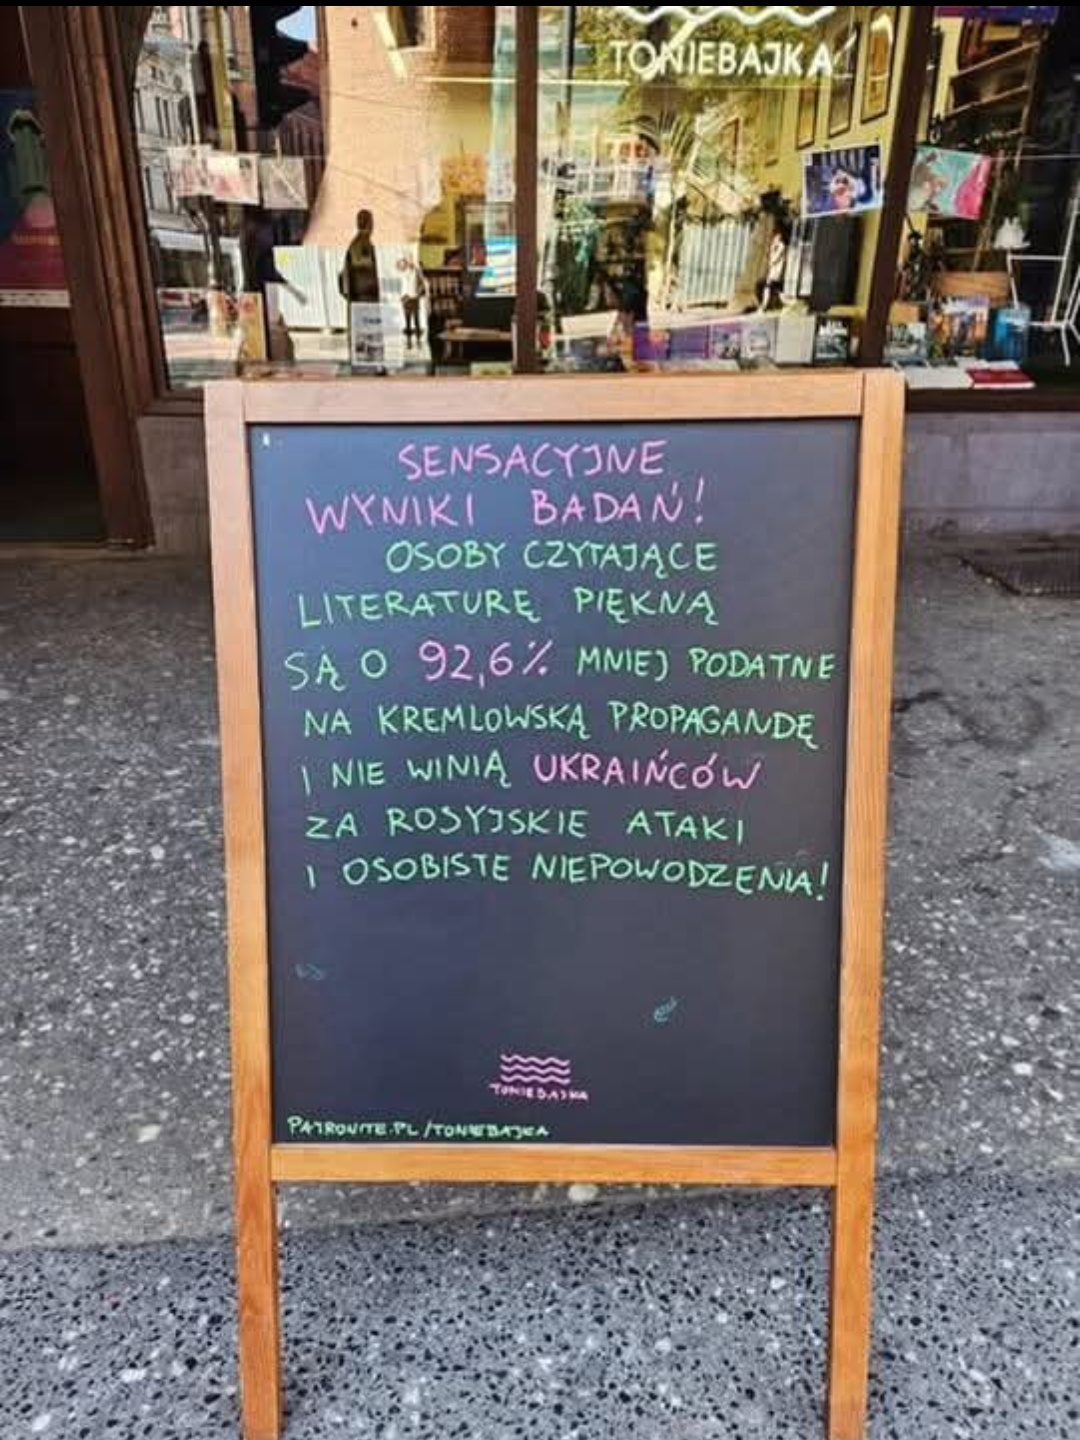 TONIEBAJKA
SENSACYJNE
WYNIKI BADAŃ!
OSOBY CZYTAJĄCE
LITERATURĘ PIĘKNĄ
SĄ O 92,6% MNIEJ PODATNE
NA KREMLOWSKĄ PROPAGANDĘ
I NIE WINIĄ UKRAIŃCÓW
ZA ROSYJSKIE ATAKI
I OSOBISTE NIEPOWODZENIA!
TONIEBAJKA
PATRONITE.PL/TONIEBAJKA